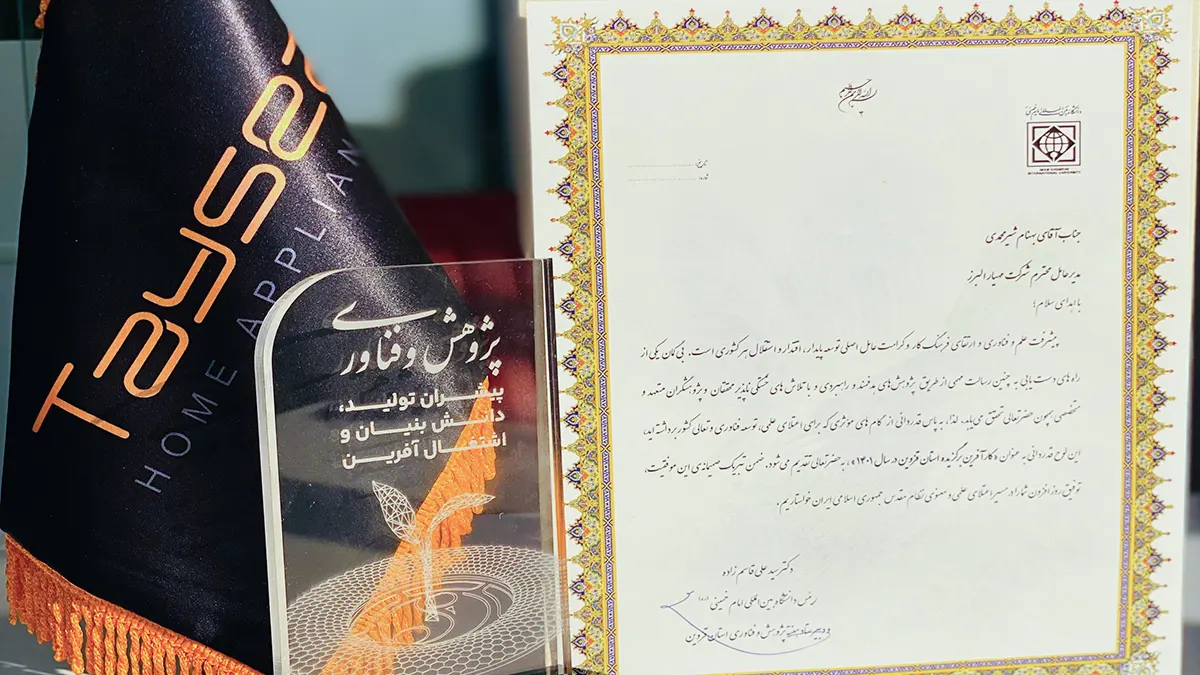 Tayse
HOME APPLIAN
پژوهش و فناوری
پیشران تولید،
دانش بنیان و
اشتغال آفرین
دانشگاه بین المللی امام خمینی
IMAM KHOMEINI
INTERNATIONAL UNIVERSITY
تاریخ:
شماره:
جناب آقای بهنام شیرمحمدی
مدیرعامل محترم شرکت مهیار البرز
با اهدای سلام؛
پیشرفت علم و فناوری و ارتقای فرهنگ کار و کرامت عامل اصلی توسعه پایدار، اقتدار و استقلال هر کشوری است. بی گمان یکی از
راه های دست یابی به چنین رسالت مهمی از طریق پژوهش های هدفمند و راهبردی و با تلاش های خستگی ناپذیر محققان و پژوهشگران متعهد و
متخصصی همچون حضرتعالی تحقق می یابد. لذا، به پاس قدردانی از گام های مؤثری که برای اعتلای علمی، توسعه فناوری و تعالی کشور برداشته اید،
این لوح قدردانی به عنوان «کارآفرین برگزیده استان قزوین در سال ۱۴۰۱»، به حضرتعالی تقدیم می شود. ضمن تبریک صمیمانه ی این موفقیت،
توفیق روز افزون شما را در مسیر اعتلای علمی و معنوی نظام مقدس جمهوری اسلامی ایران خواستاریم.
دکتر سید علی قاسم زاده
رئیس دانشگاه بین المللی امام خمینی (ره)
و دبیر ستاد هفته پژوهش و فناوری استان قزوین